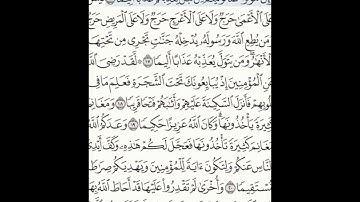 عَلَى ٱلۡأَعۡمَىٰ حَرَجٞ وَلَا عَلَى ٱلۡأَعۡرَجِ حَرَجٞ وَلَا عَلَى ٱلۡمَرِيضِ حَرَجٞ
مَن يُطِعِ ٱللَّهَ وَرَسُولَهُۥ يُدۡخِلۡهُ جَنَّٰتٖ تَجۡرِي مِن تَحۡتِهَا
ٱلۡأَنۡهَٰرُۖ وَمَن يَتَوَلَّ يُعَذِّبۡهُ عَذَابًا أَلِيمٗا ١٧ ۞ لَّقَدۡ رَضِيَ ٱللَّهُ
عَنِ ٱلۡمُؤۡمِنِينَ إِذۡ يُبَايِعُونَكَ تَحۡتَ ٱلشَّجَرَةِ فَعَلِمَ مَا فِي
قُلُوبِهِمۡ فَأَنزَلَ ٱلسَّكِينَةَ عَلَيۡهِمۡ وَأَثَٰبَهُمۡ فَتۡحٗا قَرِيبٗا ١٨ وَمَغَانِمَ
كَثِيرَةٗ يَأۡخُذُونَهَاۗ وَكَانَ ٱللَّهُ عَزِيزًا حَكِيمٗا ١٩ وَعَدَكُمُ ٱللَّهُ
مَغَانِمَ كَثِيرَةٗ تَأۡخُذُونَهَا فَعَجَّلَ لَكُمۡ هَٰذِهِۦ وَكَفَّ أَيۡدِيَ
ٱلنَّاسِ عَنكُمۡ وَلِتَكُونَ ءَايَةٗ لِّلۡمُؤۡمِنِينَ وَيَهۡدِيَكُمۡ صِرَٰطٗا
مُّسۡتَقِيمٗا ٢٠ وَأُخۡرَىٰ لَمۡ تَقۡدِرُواْ عَلَيۡهَا قَدۡ أَحَاطَ ٱللَّهُ بِهَا